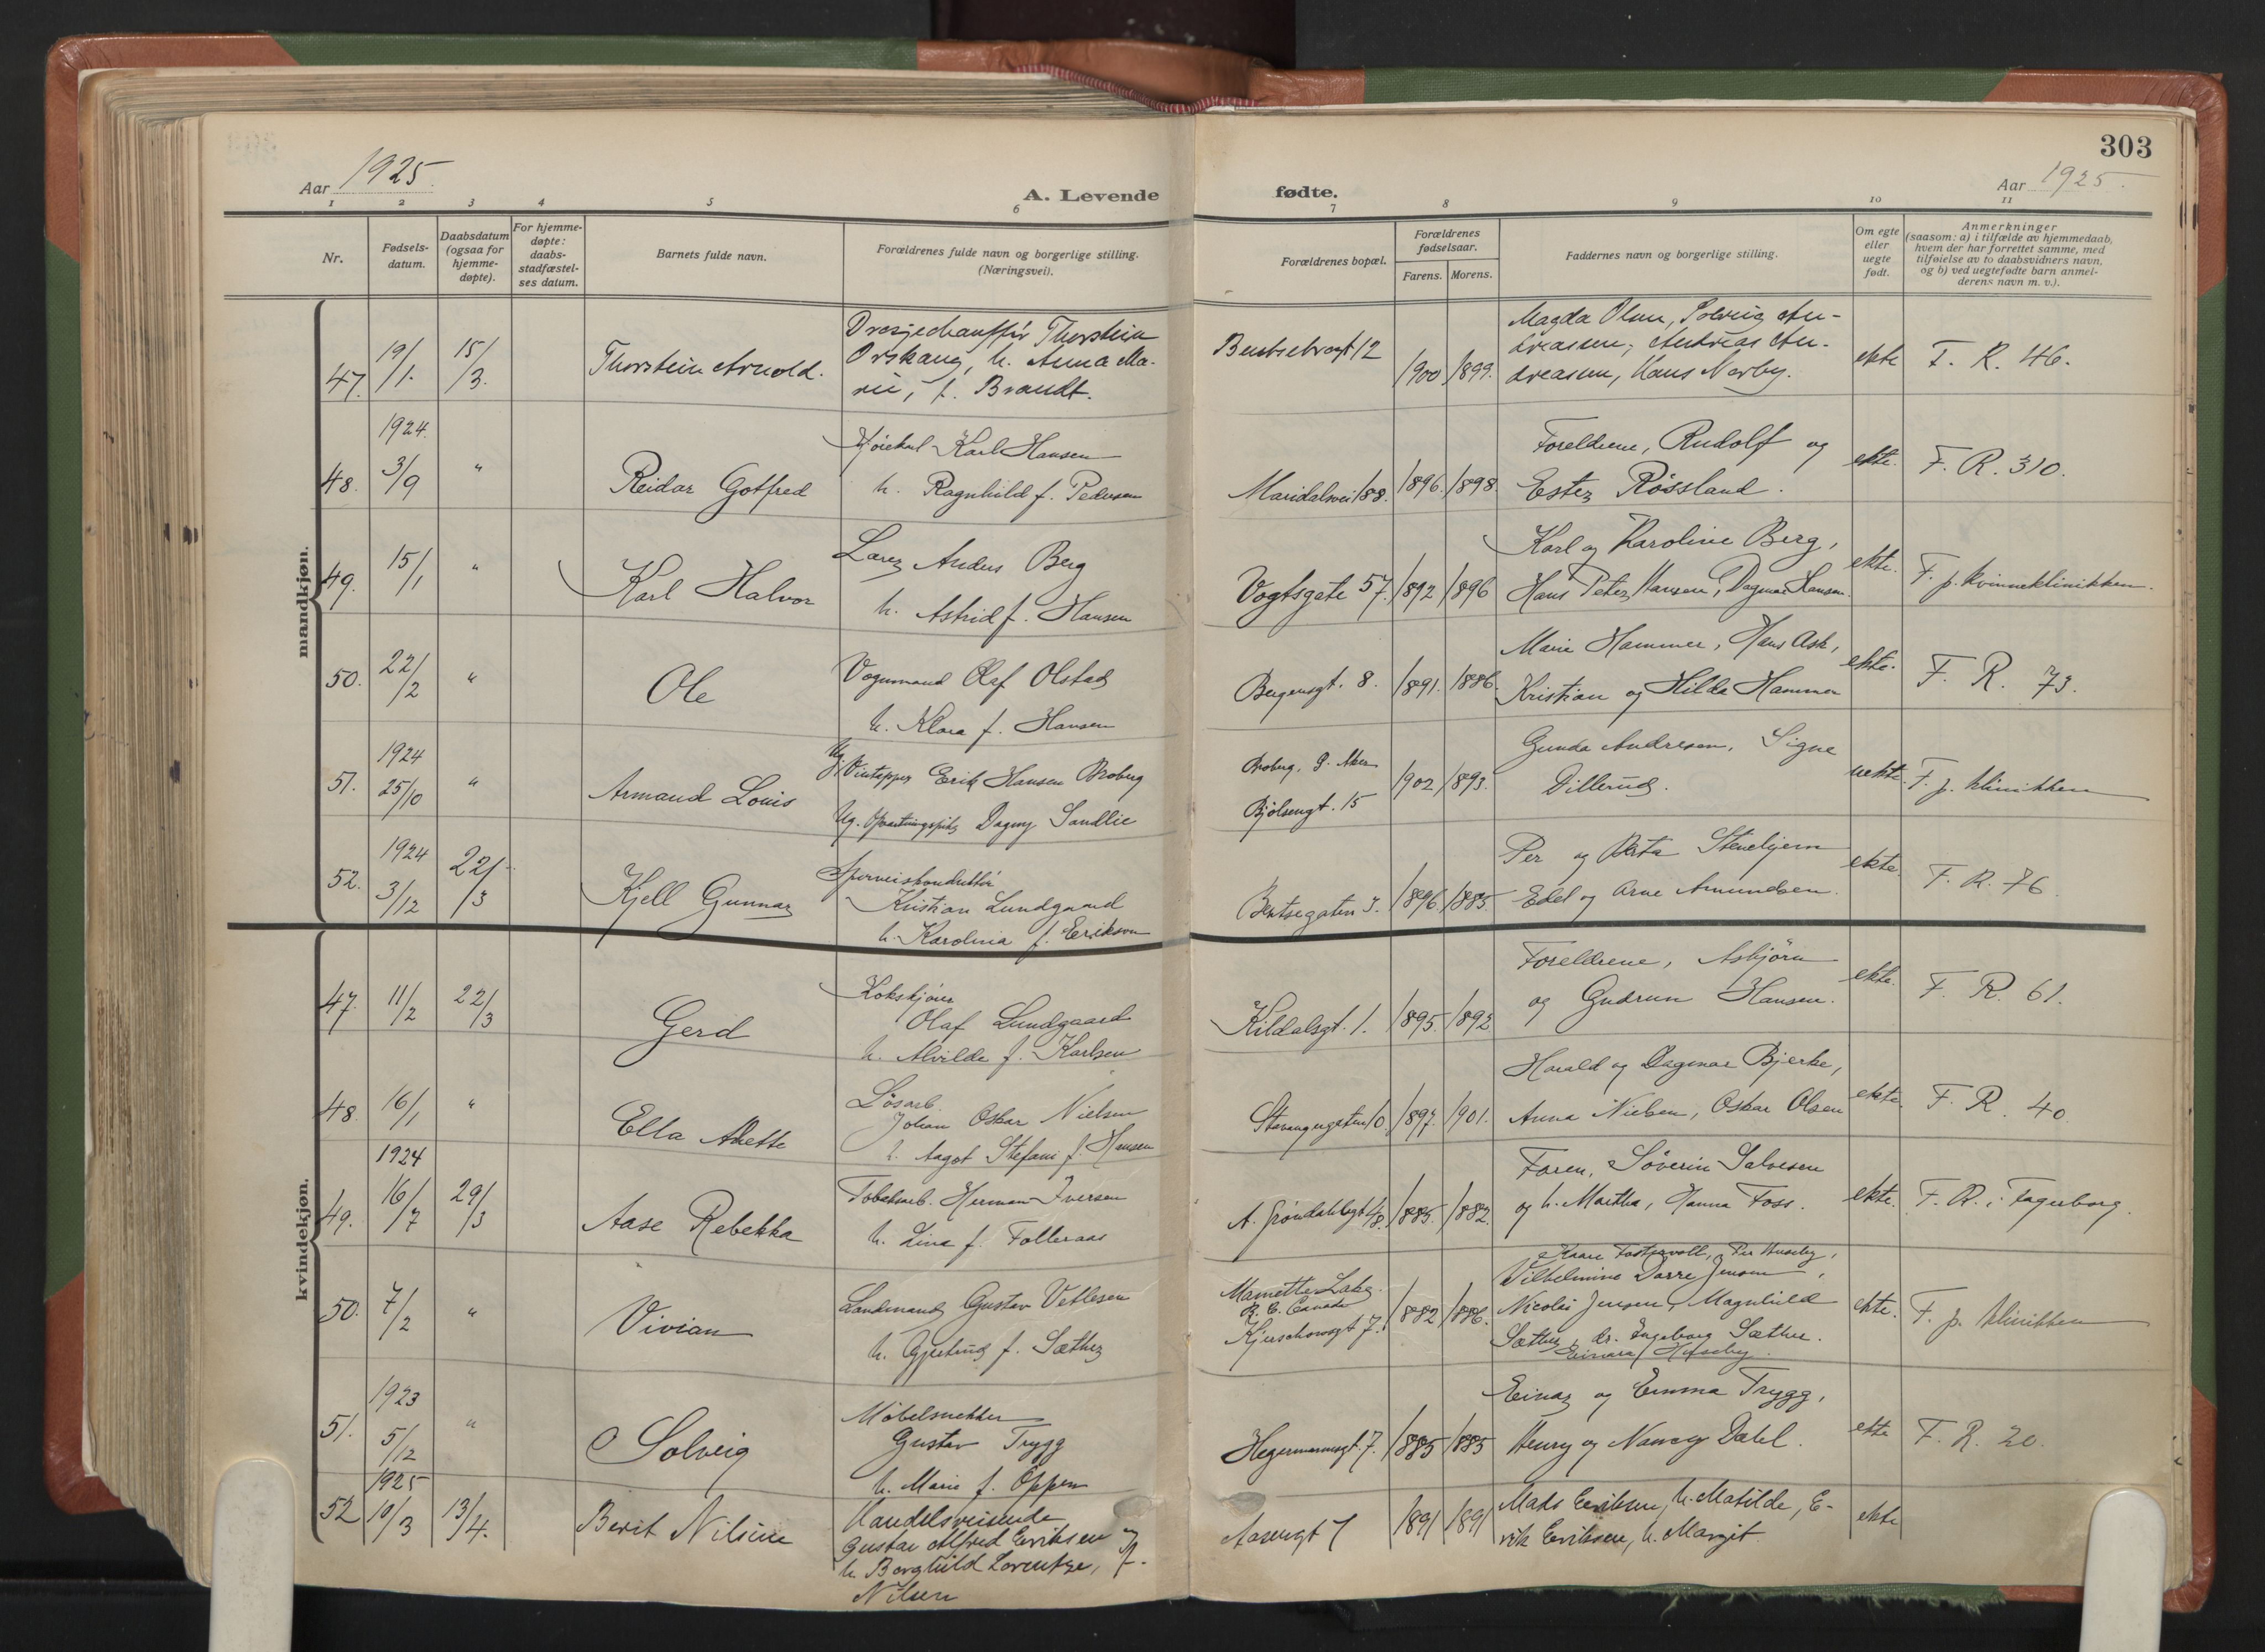 303
Aar 1925. A. Levende fødte. Aar 1925.
1 2 3 4 5 6 7 8 9 10 11
Nr.
Fødsels-
datum.
Daabsdatum
(ogsaa for
hjemme-
døpte).
For hjemme-
døpte:
daabs-
stadfæstel-
ses datum.
Barnets fulde navn.
Forældrenes fulde navn og borgerlige stilling.
(Næringsvei).
Forældrenes bopæl.
Forældrenes
fødselsaar.
Farens. Morens.
Faddernes navn og borgerlige stilling.
Om egte
eller
uegte
født.
Anmerkninger
(saasom: a) i tilfælde av hjemmedaab,
hvem der har forrettet samme, med
tilføielse av to daabsvidners navn,
og b) ved uegtefødte barn anmel-
derens navn m. v.).
mandkjøn.
47. 19/1. 15/3. Thorstein Arnold.
Drosjechauffør Thorstein
Orskaug, h. Anna Ma-
rie, f. Brandt.
1900 1899.
Magda Olsen, Solveig An-
dreassen, Andreas An-
dreassen, Hans Nørby.
ekte F. R. 46.
1924.
48. 3/9 " Reidar Gotfred
Karl Hansen
h. Ragnhild f. Pedersen
Maridalsvei 188. 1896. 1898.
Foreldrene, Rudolf og
Ester Røssland.
ekte. F. R. 310.
49. 15/1 " Karl Halvor
Anders Berg
h. Astrid f. Hansen
Vogtsgate 57. 1892 1896
Karl og Karoline Berg,
Hans Peter Hansen, Dagmar Hansen.
ekte. F. p. kvinneklinikken.
50. 22/2 " Ole
Vognmand Olaf Olstad
h. Klara f. Hansen
Bergensgt. 8. 1891. 1886.
Marie Hammer, Hans Ask,
Kristian og Hilda Hammer
ekte. F. R. 73.
1924
51. 25/10 " Armand Louis
Ug. Vintapper Erik Hansen Broberg
Ug. Dagny Sandlie
Broberg, Ø. Aker
Bjølsengt. 15
1902 1893.
Gunda Andresen, Signe
Dillerud.
uekte. F. p. klinikken
1924
52. 3/12 22/3 Kjell Gunnar
Sporveiskonduktør
Kristian Lundgaard
h. Karolina f. Erikson
Bentsegaten 3. 1896. 1885.
Per og Stenebjern
Edel og Arne Amundsen.
ekte. F. R. 76.
kvindekjøn.
47. 11/2 22/3 Gerd
Kokskjører
Olaf Lundgaard
h. Alvilde f. Karlsen
Kildalsgt. 1. 1895. 1892
Foreldrene, Asbjørn
og Gudrun Hansen.
ekte. F. R. 61.
48. 16/1 " Ella Anette
Løsarb.
Johan Oskar Nielsen
h. Aagot Stefani f. Hansen
Stavangergaten 10. 1897. 1901.
Harald og Dagmar Bjerke,
Anna Nielsen, Oskar Olsen
ekte. F. R. 40.
1924
49. 16/7 29/3 Aase Rebekka
Tobaksarb. Herman Iversen
h. Lina f. Folleraas
1885. 1882.
Faren, Søverin Salvesen
og h. Martha, Hanna Foss.
ekte. F. R. i Fagerborg.
50. 7/2 " Vivian
Landmand Gustav Vetlesen
h. Gjertrud f. Sæther
Mamette Lake
B. C. Canada
Kjerschowsgt 7.
1882 1886.
Kaare Fostervoll, Per Huseby,
Vilhelmine Darre Jensen,
Nicolai Jensen, Magnhild
Sæther, dr. Ingeborg Sæther.
Einara Huseby.
ekte. F. p. klinikken
1923
51. 5/12 " Solveig
Møbelsnekker
Gustav Trygg
h. Marie f. Oppen
Hegermannsgt. 7. 1885 1885
Einar og Emma Trygg,
Henry og Nancy Dahl.
ekte F. R. 20.
1925
52 10/3 13/4. Berit Nilsine
Handelsreisende
Gustav Alfred Eriksen
h. Borghild Lorentze, f.
Nilsen
Aasengt 7 1891 1891
Mads Eriksen, h. Matilde, E-
rik Eriksen, h. Margit.
ekte